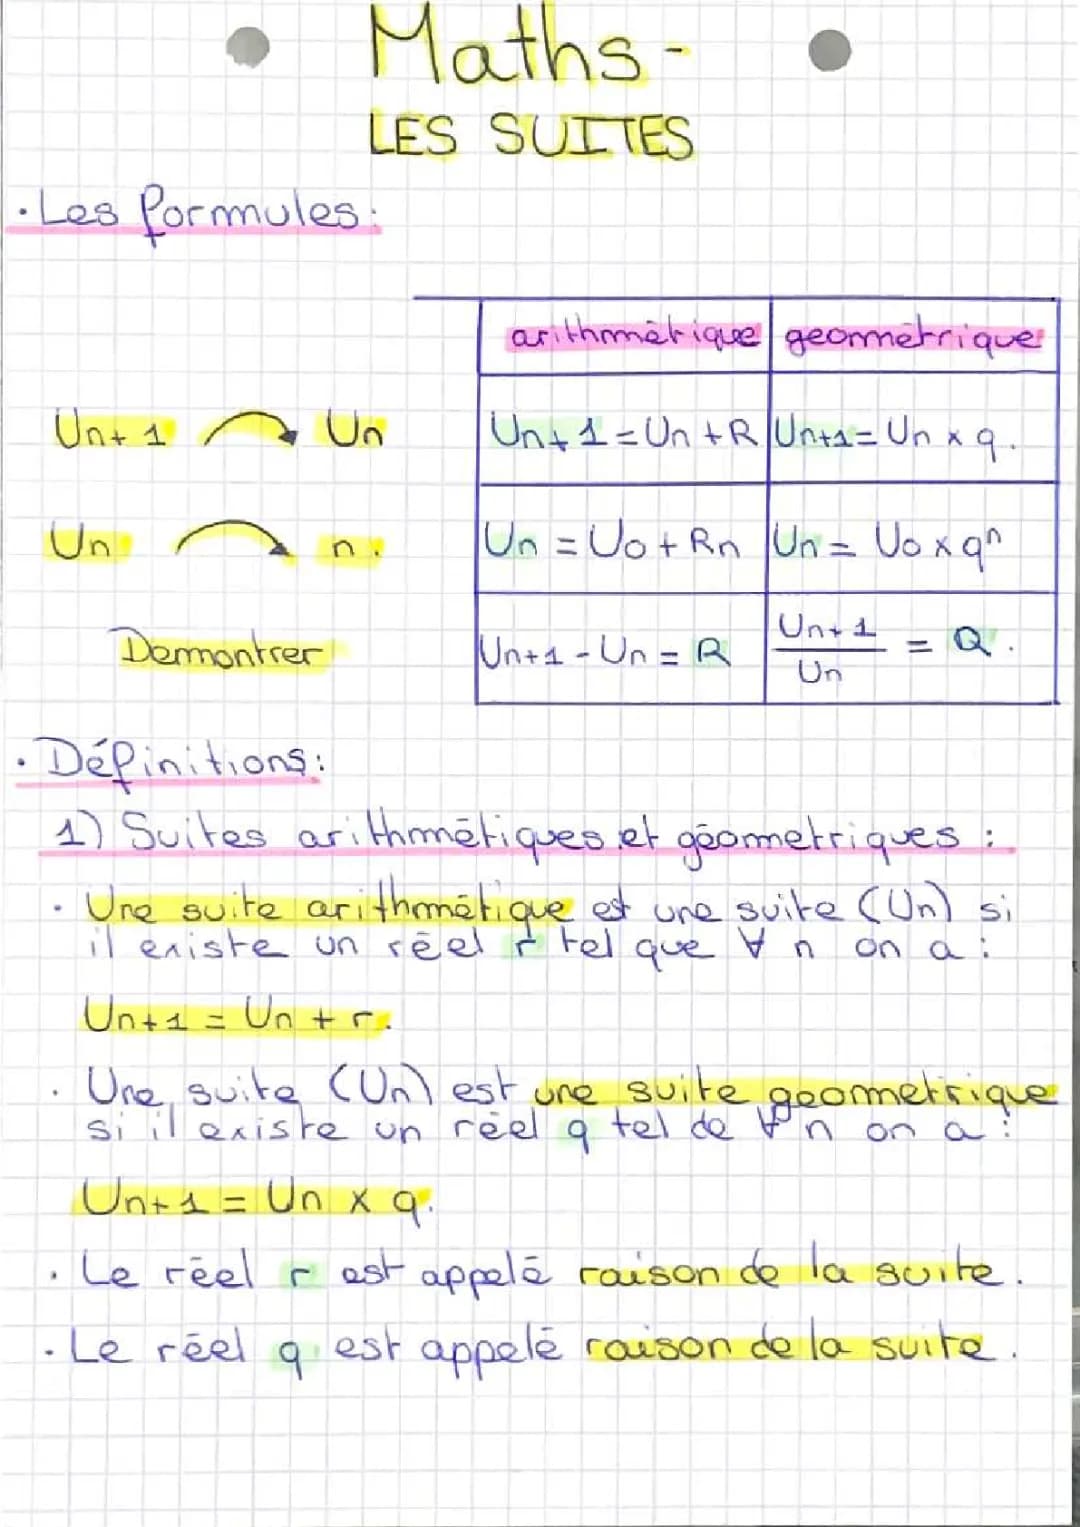 Maths-
LES SUITES
• Les formules:
arithmétique geometrique
Un+1 Un Un+1 = Un + R Un+1 = Un x q.
Un n. Un = U0 + Rn Un = U0 x qⁿ
Demontrer Un+1 - Un = R Un+1/Un = Q.
• Définitions:
1) Suites arithmétiques et géometriques :
• Une suite arithmétique est une suite (Un) si
il existe un réel r tel que ∀ n on a :
Un+1 = Un + r.
• Une suite (Un) est une suite geometrique
si il existe un réel q tel de ∀ n on a :
Un+1 = Un x q.
• Le réel r est appelé raison de la suite.
• Le réel q est appelé raison de la suite.